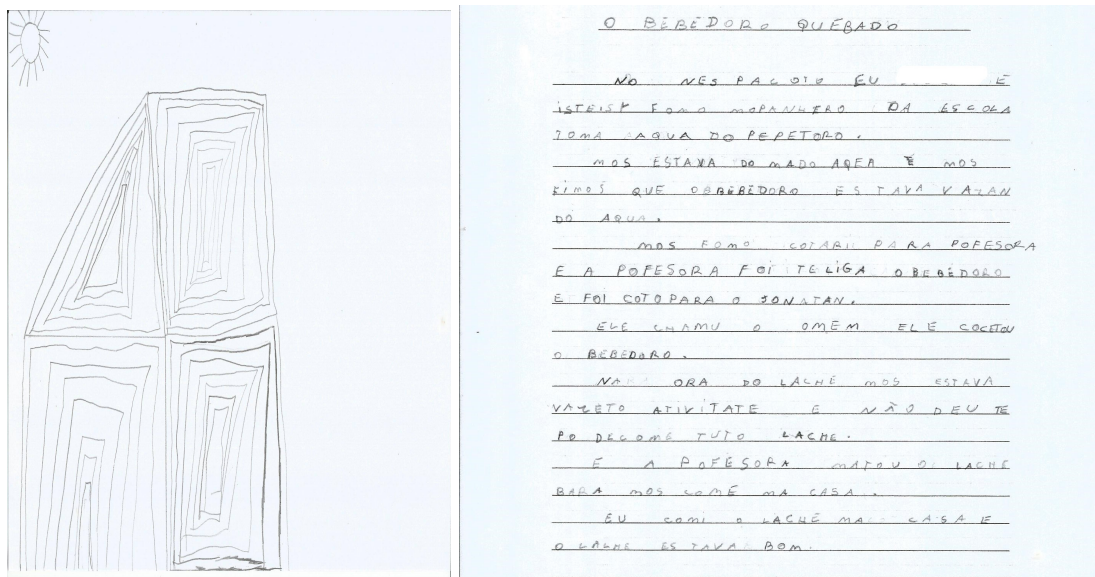 O BEBEDORO QUEBADO
NO NES PACOTO EU E
ISTEISY FOMO MOPANLERO DA ESCOLA
TOMA AAQUA DO PEPETORO.
MOS ESTAVA DO MADO AQEA E MOS
FIMOS QUE OBBEBEDORO ESTAVA VAZAN
DO AQUA.
MOS FOMO COTARI PARA POFESORA
E A POFESORA FOI ITELIGA OBEBEDORO
E FOI COTOPARA O JONATAN.
ELE CHAMU O OMEM ELE COCETOU
O BEBEDORO.
NA ORA DO LACHE MOS ESTAVA
VAZETO ATIVITATE E NÃO DEU TE
PO DECOME TUTO LACHE.
E A POFESORA MATOU O LACHE
BARA MOS COME MA CASA.
EU COMI O LACHE MA CASA E
O LACHE ESTAVA BOM.